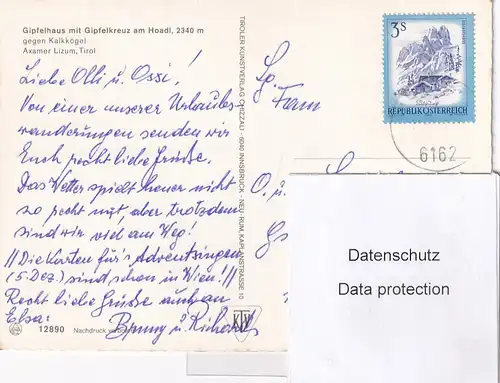 Gipfelhaus mit Gipfelkreuz am Hoadl, 2340 m
gegen Kalkkögel
Axamer Lizum, Tirol
Liebe Olli u. Ossi!
Von einer unserer Urlaubs-
wanderungen senden wir
Euch recht liebe Grüsse.
Das Wetter spielt heuer nicht
so recht mit, aber trotzdem
sind wir viel am Weg!
//Die Karten für's Adventsingen
(5. Dez.) sind schon in Wien!//
Recht liebe Grüsse auch an
Elsa:
Bunny u. Richard
12890
Nachdruck
TIROLER KUNSTVERLAG CHIZZALI - 6040 INNSBRUCK - NEU-RUM, KAPLANSTRASSE 10
KTV
Fam
O. u.
3 S
REPUBLIK ÖSTERREICH
6162
Datenschutz
Data protection